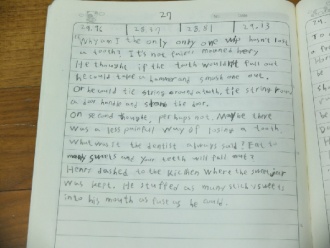 27
29.96 28.27 28.81 29.13
Why am I the only only one who hasn't lost
a tooth? It's not fair moaned henry
He thought if the tooth wouldn't fall out
He could take a hammer and smash one out.
Or he could tie string around a tooth, tie string around
a door handle and the door.
On second thoughts, perhaps not. Maybe there
was a less painful way of losing a tooth.
What was it the dentist always said? Eat too
many sweets and your teeth will fall out?
Henry dashed to the kitchen where the sweet jar
was kept. He stuffed as many sticky sweets
into his mouth as fast as he could.